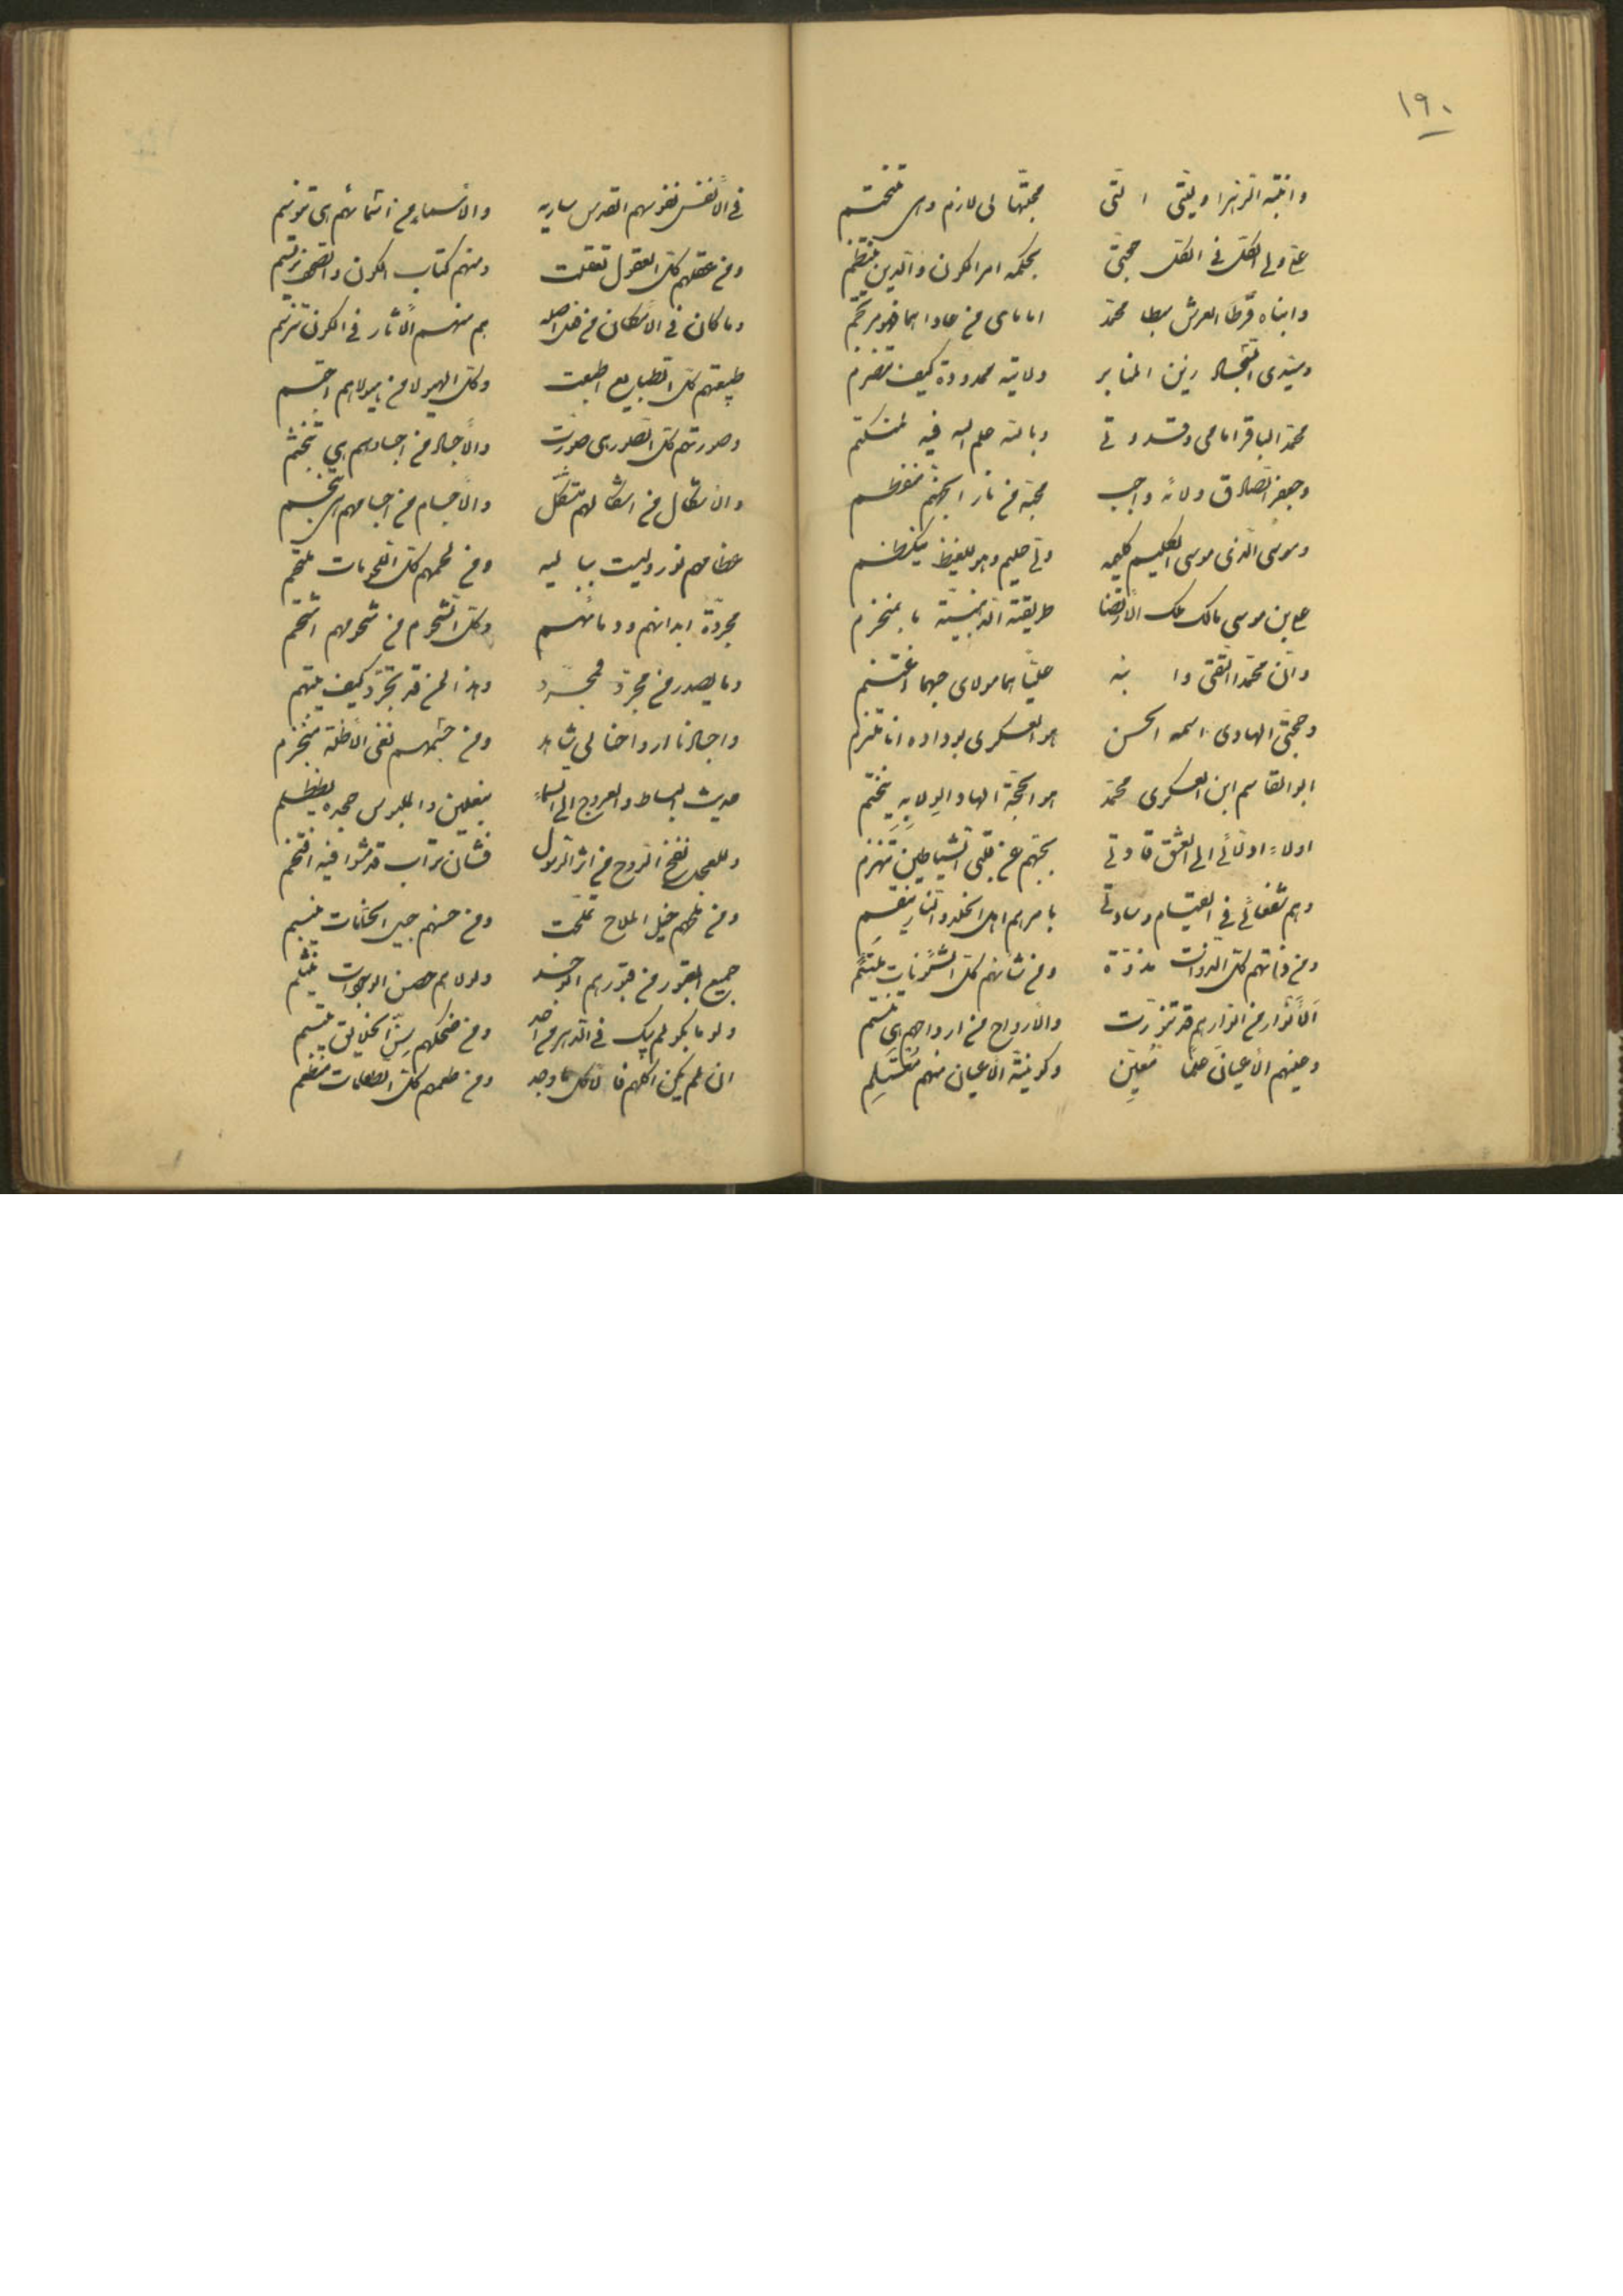 ١٩٠
وابنته الزهرا وثقتی التی محبتها لی لازم وهی تختتم
علی ولی الکل فی الکل حجتی بحکمه امر الکون والدین ینتظم
وابناه قرطا العرش سبطا محمد امامای من عاداهما فهو مرتجم
وسیدی السجاد زین المنابر ولایته ممدودة کیف تنصرم
محمد الباقر امامی وقدوتی وبالله علم الله فیه لمنکتم
وجعفر الصادق ولائه واجب محبه من نار الجحیم منفطم
وموسی الذی موسی الکلیم کلیمه ولی حلیم وهو للغیظ یکتظم
علی بن موسی مالک ملک الرضا طریقته الذهبیة ما بمنخرم
وان محمدا التقی وابنه علیا هما مولای حبهما اغتنم
وحجتی الهادی اسمه الحسن هو العسکری بوداده انا ملتزم
ابوالقاسم ابن العسکری محمد هو الحجة الهاد الولایه یختتم
اولاء اولیائی الی العشق قادتی بحبهم عن قلبی الشیاطین تنهزم
وهم شفعائی فی القیام وسادتی بامرهم اهل الخلد والنار ینقسم
ومن ذاتهم کل الذوات مذوتة ومن شانهم کل الشئونات ملتئم
الانوار من انوارهم قد تنورت والارواح من ارواحهم هی تنتسم
وعینهم الاعیان علما معین وکونیة الاعیان منهم مستلم
فی الانفس نفوسهم القدس ساریه والاسماء من اسمائهم هی تتوسم
ومن عقلهم کل العقول تعقلت ومنهم کتاب الکون والصحف یرتسم
وما کان فی الامکان من اصله بهم منهم الاثار فی الکون ترتسم
طبیعتهم کل الطبایع اطبعت وکل الهیولا من هیولاهم
وصورتهم کل الصور هی صورت والاجساد من اجسادهم هی تجثم
والاشکال من اشکالهم متشکل والاجسام من اجسامهم هی تجسم
عظامهم نور ولیت ببالیه ومن لحمهم کل اللحومات ملتحم
مجردة ابدانهم ودمائهم وکل الشحوم من شحومهم اشتحم
وما یصدر من مجرد فمجرد وهذا لمن قد تجرد کیف یتهم
واجسادنا ارواحنا لی شاهد ومن جسمهم نفی الاظلة منجزم
حدیث البساط والعروج الی السماء بنعلین والملبوس حجره
وللعجل نفخ الروح من اثر الرسول فشان تراب قد مشوا فیه افتخم
ومن ملحهم خیل الملاح تملحت ومن حسنهم جید الحسنات
جمیع القبور من قبورهم ولولاهم حصن الوجودات ینثلم
ولو ما لم یک فی الدهر من احد ومن ضحکهم سن الخلایق یبتسم
ان لم یکن اکلهم فالاکل ما وجد ومن طعمهم کل الطعامات منطعم